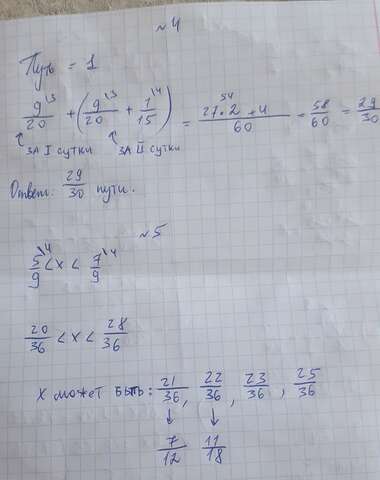 №4
Путь = 1
9\3/20 + (9\3/20 + 1\4/15) = (27·2 54 + 4)/60 = 58/60 = 29/30
за I сутки за II сутки
Ответ: 29/30 пути.
№5
5\4/9 < x < 7\4/9
20/36 < x < 28/36
x может быть: 21/36, 22/36, 23/36, 25/36
↓ ↓
7/12 11/18